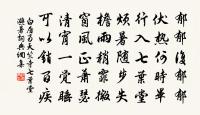 郁郁復郁郁
伏熱何時畢
行入七葉堂
煩暑隨步失
檐雨稍霏微
窗風正蕭瑟
清宵一覺睡
可以銷百疾
白居易天竺寺七葉堂
避暑詩詞典網集